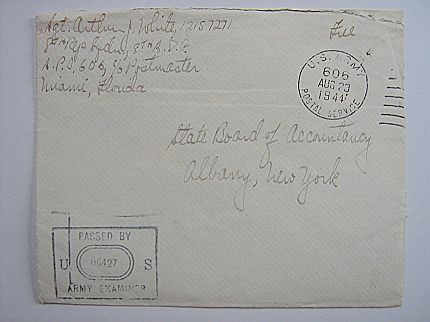 Sgt. Arthur J. White, 12157271
8th Rep Sqdn, 8th A.D.G.
A.P.O. 606, c/o Postmaster
Miami, Florida
Free
U.S. ARMY
606
AUG 23
1944
POSTAL SERVICE
State Board of Accountancy
Albany, New York
PASSED BY
U 06427 S
ARMY EXAMINER